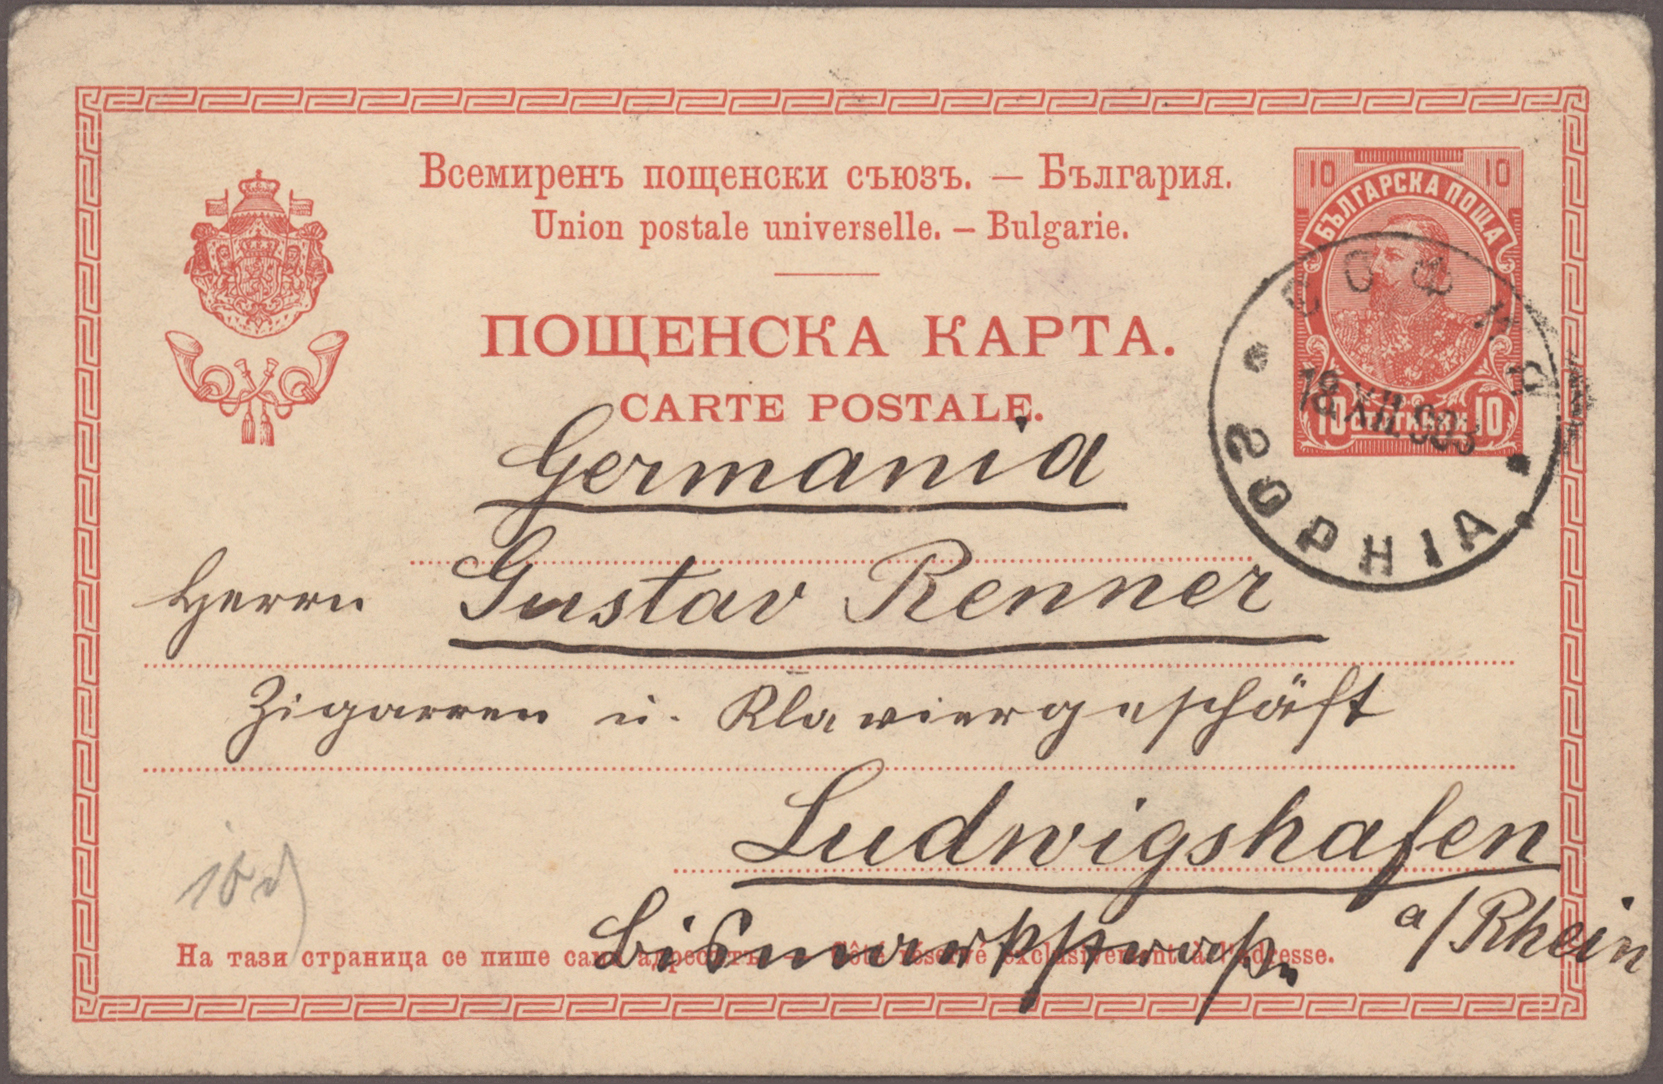 Всемиренъ пощенски съюзъ. — България.
Union postale universelle. — Bulgarie.
10 10
БЪЛГАРСКА ПОЩА
ПОЩЕНСКА КАРТА.
CARTE POSTALE.
СОФИЯ
18 XII. 903
10 СТОТИНКИ 10
SOPHIA
Germania
Herrn Gustav Renner
Zigarren u. Klaviergeschäft
Ludwigshafen
a/Rhein
Bismarckstraße
На тази страница се пише само адресътъ. — Côté réservé exclusivement à l'adresse.